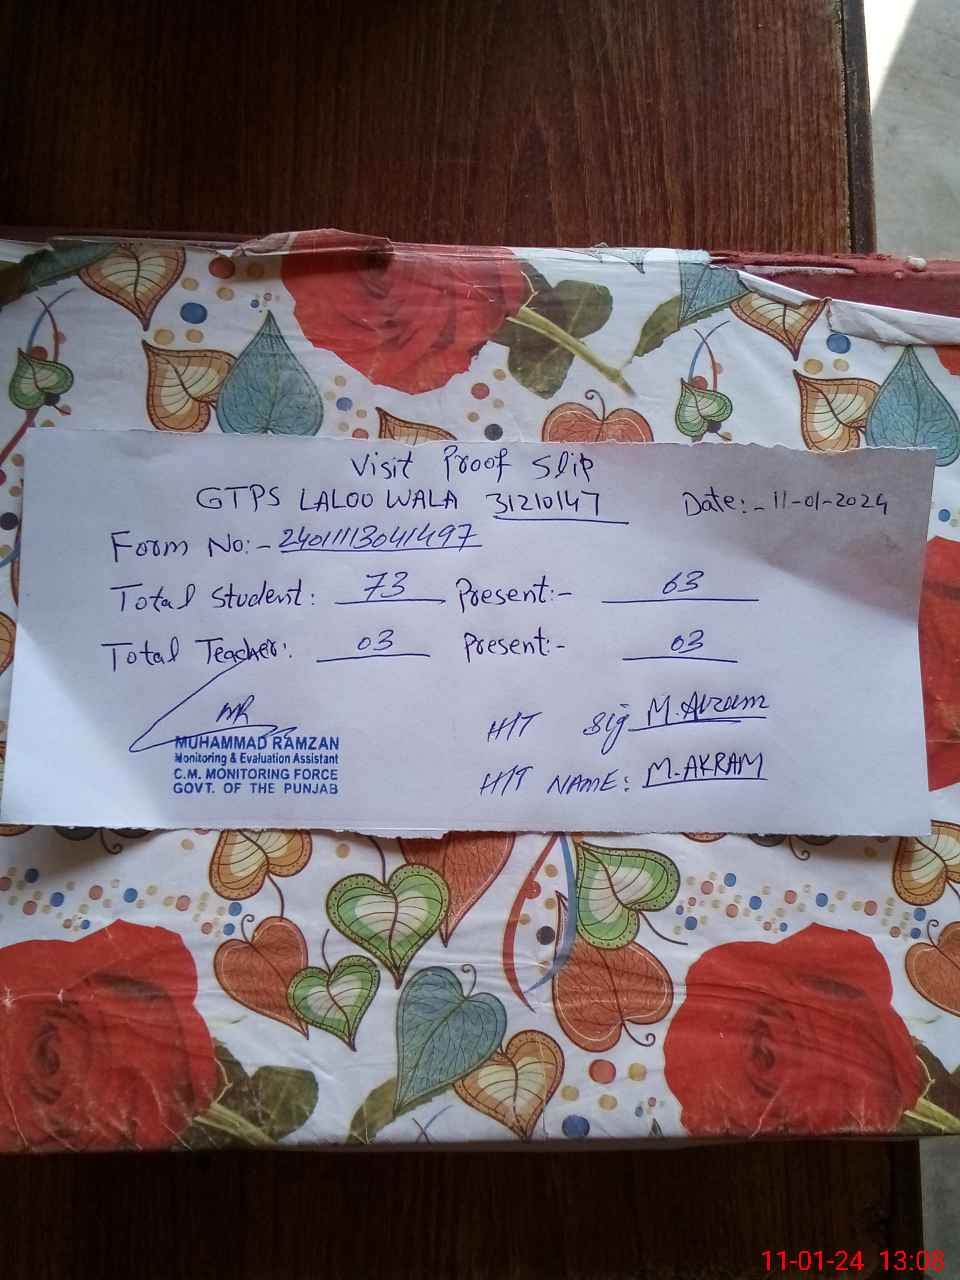 Visit Proof Slip
GTPS LALOO WALA 31210147 Date:- 11-01-2024
Form No:- 2401113041497
Total Student: 73 Present:- 63
Total Teacher: 03 Present:- 03
MR
H/T Sig M.Akram
MUHAMMAD RAMZAN
Monitoring & Evaluation Assistant
C.M. MONITORING FORCE
GOVT. OF THE PUNJAB
H/T NAME: M.AKRAM
11-01-24 13:08